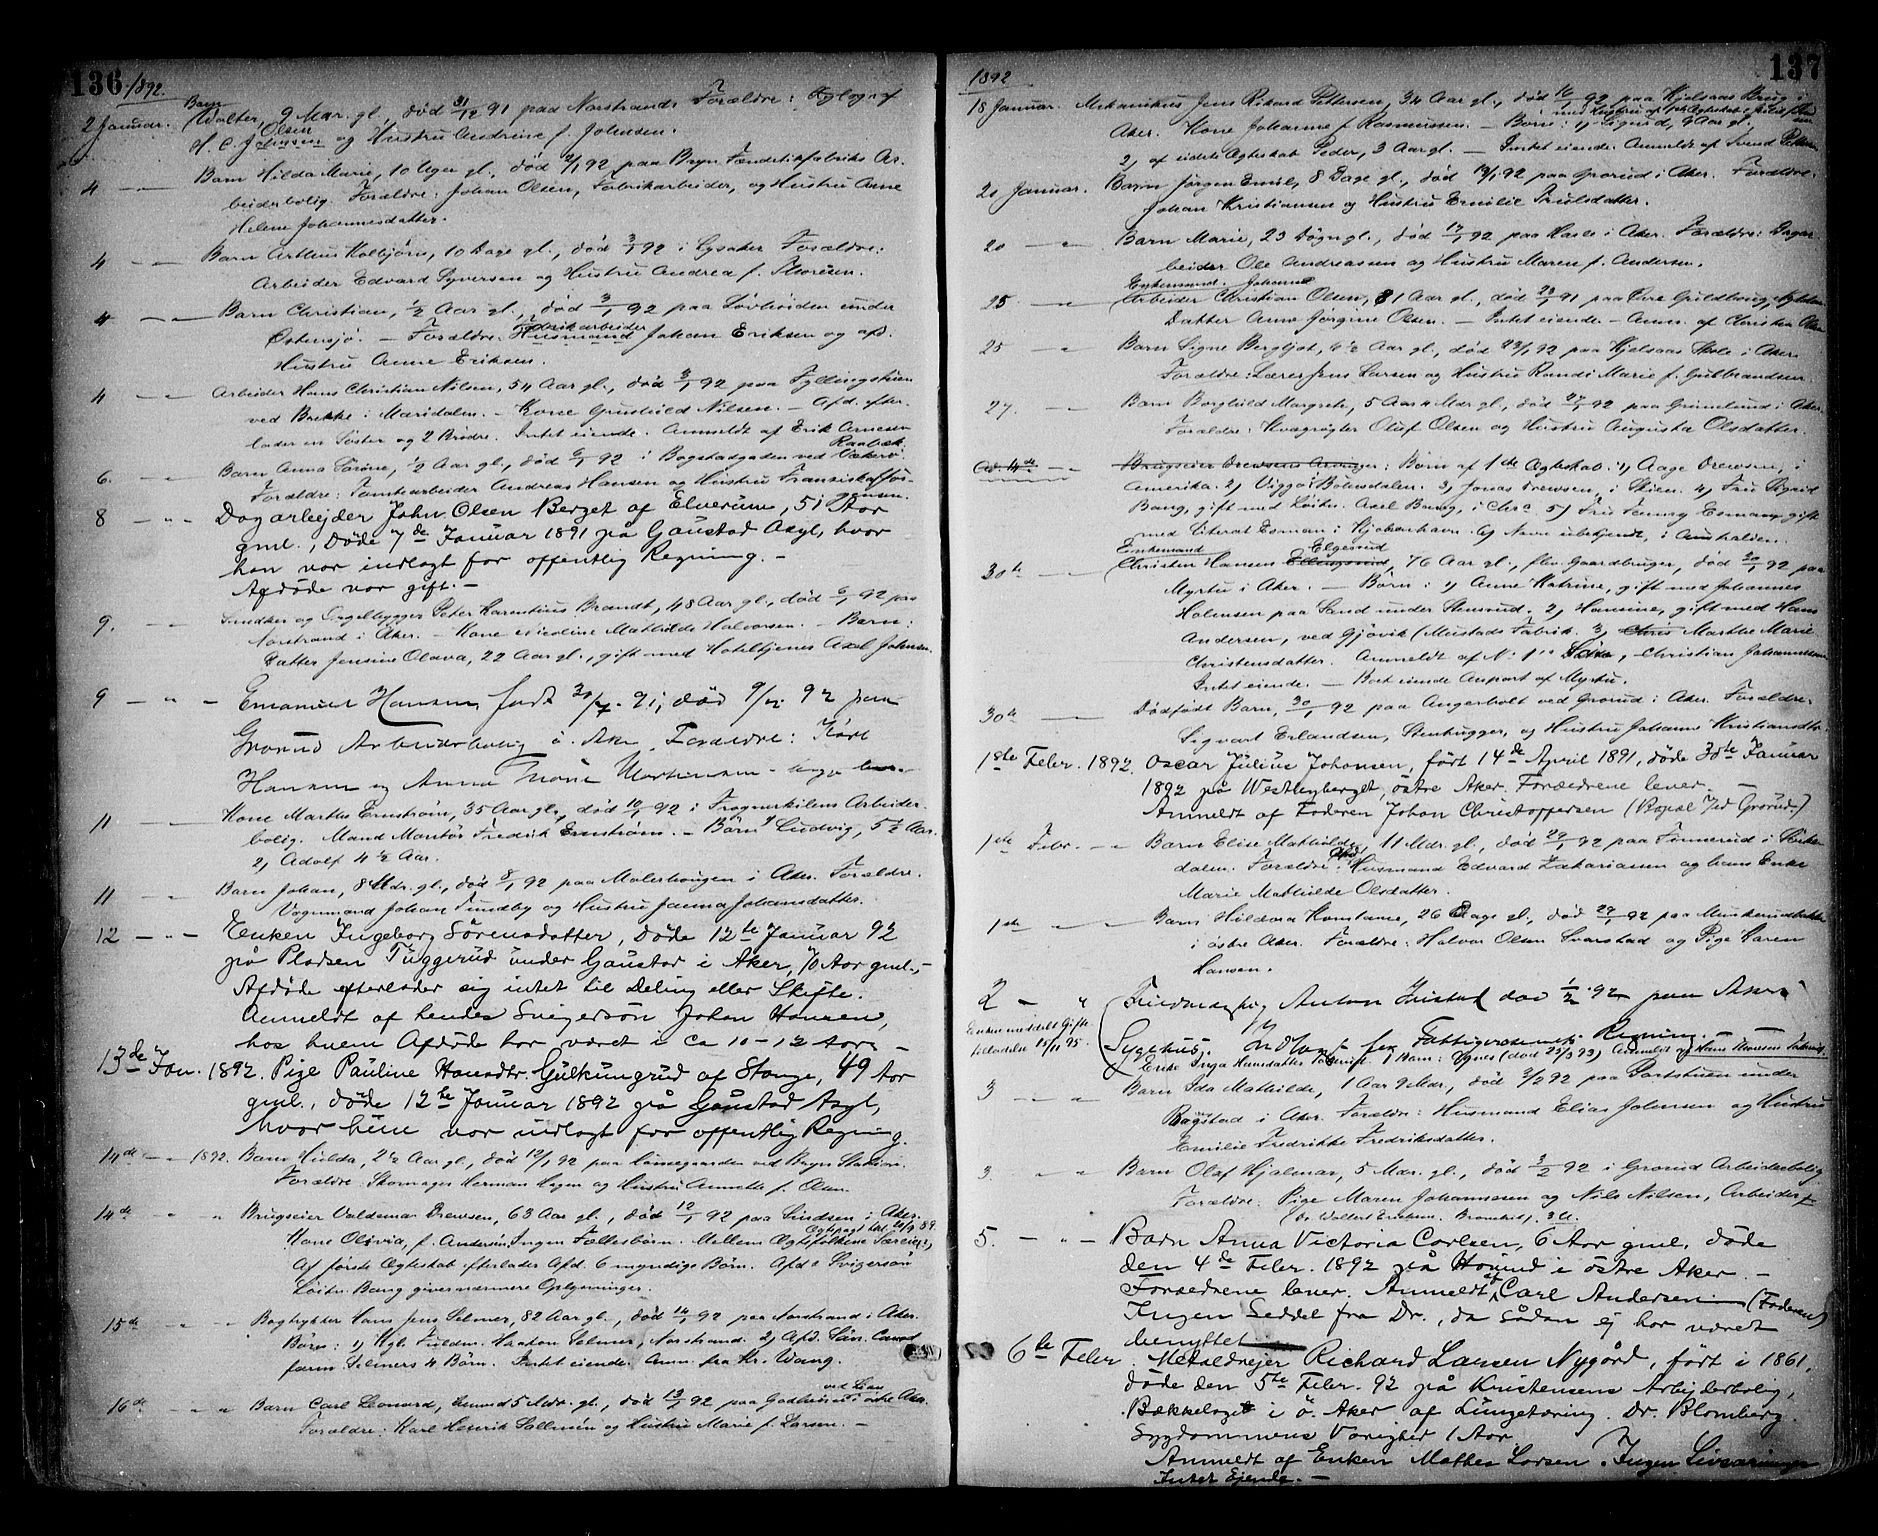 136 1892.
2 Januar. Barn Walter, 9 Mdr. gl., død 31/12 91 paa Norstrand. Forældre:
H. C. Olsen Johnsen og Hustru Andrine f. Johnsen.
4 — „ — Barn Hilda Marie, 10 Uger gl., død 2/1 92 paa Bryn Tændstikfabriks Ar-
beiderbolig. Forældre: Johan Olsen, Fabrikarbeider, og Hustru Anne
Helene Johannesdatter.
4 — „ — Barn Arthur Kolbjørn, 10 Dage gl., død 3/1 92 i Lysaker Forældre:
Arbeider Edvard Syversen og Hustru Andrea f. Thoresen.
4 — „ — Barn Christian, 1/2 Aar gl., død 3/1 92 paa under
Østensjø. — Forældre: Fabrikarbeider Husmand Johan Eriksen og afd.
Hustru Anne Eriksen.
4 — „ — Arbeider Hans Christian Nilsen, 54 Aar gl., død 3/1 92 paa
ved Brekke i Maridalen. — Kone Gunhild Nilsen. — Afd. efter-
lader en Søster og 2 Brødre. Intet eiende. Anmeldt af Erik Arnesen
6. — „ — Barn Anna 1/2 Aar gl., død 6/1 92 i Bogstadgaden ved Vækerø.
Forældre: Tomtearbeider Andreas Hansen og Hustru
8 — „ — Dagarbejder John Olsen Berget af Elverum, 51 Aar
gml., døde 7de Januar 1891 på Gaustad Asyl, hvor
han var indlagt for offentlig Regning. —
Afdøde var gift. —
9. — „ — Snedker og Orgelbygger Peter Brandt, 48 Aar gl., død 6/1 92 paa
Norstrand i Aker. — Kone Nicoline Mathilde Halvorsen. — Barn:
Datter Jensine Olava, 22 Aar gl., gift med Axel Johnsen.
9 — „ — Emanuel Hansen født 30/7 91, død 9/1 92 paa
Grorud Arbeiderbolig i Aker. Forældre: Karl
Hansen og Anna
11 — „ — Kone Marthe Ernstrøm, 35 Aar gl., død 10/1 92 i Frognerkilens Arbeider-
bolig. Mand Fredrik Ernstrøm. — Børn 1) Ludvig, 5 1/2 Aar.
2) Adolf 4 1/2 Aar.
11 — „ — Barn Johan, 8 Mdr. gl., død 8/1 92 paa Malerhaugen i Aker. Forældre:
Vognmand Johan Sundby og Hustru Janna Johansdatter.
12 — „ — Enken Ingeborg Sörensdatter, döde 12te Januar 92
på Pladsen Tuggerud under Gaustad i Aker, 70 Aar gml. —
Afdøde efterlader sig intet til Deling eller Skifte.
Anmeldt af hendes Svigersön Johan Hansen,
hos hvem Afdøde har været i ca 10—12 Aar. —
13de Jan. 1892. Pige Pauline Hansdtr. Gulküngrud af Stange, 49 Aar
gml., døde 12te Januar 1892 på Gaustad Asyl,
hvor hun var indlagt for offentlig Regning.
14de — „ 1892. Barn Hulda, 2 1/2 Aar gl., død 12/1 92 paa ved Bryn Station.
Forældre: Skomager Herman Hegen og Hustru Annette f. Olsen.
14de „ „ Brugseier Valdemar Drewsen, 63 Aar gl., død 12/1 92 paa Sindsen i Aker.
Kone Olivia, f. Andersen. Ingen Fællesbørn. Mellem Ægtefolkene Særeie,
Af første Ægteskab efterlader Afd. 6 myndige Børn. Afd.s Svigersøn
Løitn. Bang giver nærmere Oplysninger.
15de „ „ Bogtrykker Hans Jens Selmer, 82 Aar gl., død 14/1 92 paa Norstrand i Aker.
Børn: 1) Kgl. Fuldm. Haaton Selmer, Norstrand. 2) Afd. Søn
Selmers 4 Børn. Intet eiende. Anm. fra Kr. Wang.
16de — „ „ Barn Carl Leonard, 5 Mdr. gl., død 13/1 92 paa Godheim ved Lian i østre Aker.
Forældre: Karl Henrik Sallmén og Hustru Marie f. Larsen. —
1892 137
18 Januar. Mekanikus Jens Rikard Pettersen, 34 Aar gl., død 16/1 92 paa Kjelsaas Brug i
Aker. Kone Johanne f. Rasmussen. — Børn: 1) Sigurd, 9 Aar gl.,
2) af sidste Ægteskab Peder, 3 Aar gl. — Intet eiende. Anmeldt af Svend
20 Januar. Barn Jørgen Emil, 8 Dage gl., død 19/1 92 paa Grorud i Aker. Forældre:
Johan Kristiansen og Hustru Emilie Trulsdatter.
20 — „ Barn Marie, 23 Døgn gl., død 17/1 92 paa Hasle i Aker. Forældre: Dagar-
beider Ole Andreassen og Hustru Maren f. Andersen.
25. — „ Enkemand Johanne Arbeider Christian Olsen, 81 Aar gl., død 23/1 91 paa
Datter Anne Jørgine Olsen. — Intet eiende. — Anm. af Christen Olsen
25 — „ Barn Signe Bergljot, 6 1/2 Aar gl., død 23/1 92 paa Kjelsaas Skole i Aker.
Forældre: Lærer Jens Larsen og Hustru Randi Marie f. Gulbrandsen.
27. — „ Barn Borghild Margrete, 5 Aar 4 Mdr gl., død 27/1 92 paa Grimelund i Aker.
Forældre: Kvægrøgter Oluf Olsen og Hustru Augusta Olsdatter.
Ad 14de — „ Brugseier Drewsens Arvinger: Børn af 1ste Ægteskab: 1) Aage Drewsen, i
Amerika. 2) Viggo i Bøhmdalen. 3) Jonas Drewsen, i Skien. 4) Fru Sigrid
Bang, gift med Løitn. Axel Bang, i Chra 5) Fru Fanny Esmann gift
med Literat Esman i Kjøbenhavn. 6) Navn ubekjendt, i Australien.
30te — „ Enkemand Christen Hansen Elgesrud Ellingsrud, 76 Aar gl., fhv. Gaardbruger, død 30/1 92 paa
Myrtu i Aker. — Børn: 1) Anne Katrine, gift med Johannes
Holmsen paa Sand under Stensrud. 2) Hansine, gift med Hans
Andersen, ved Gjøvik (Mustads Fabrik. 3) Chris Marthe Marie
Christensdatter. Anmeldt af No 1's Søn, Christian Johannessen.
Intet eiende. —
30te — „ Dødfødt Barn, 30/1 92 paa Angerholt ved Grorud i Aker. Forældre:
Sigvart Erlandsen, Stenhugger, og Hustru Johanne Kristiansdtr.
1ste Febr. 1892. Oscar Julius Johansen, født 14de April 1891, døde 30te Januar
1892 på Westbyberget, østre Aker. Forældrene lever. —
Anmeldt af Faderen Johan Christoffersen (Bopæl Ved Grorud.)
1ste Febr. — „ Barn Elise Mathilde, 11 Mdr. gl., død 29/1 92 paa Finnerud i Sørke-
dalen. Forældre: Afd. Husmand Edvard Zakariasen og hans Enke
Marie Mathilde Olsdatter.
1ste „ „ Barn Hildora Konstanse, 26 Dage gl., død 29/1 92 paa
i østre Aker. Forældre: Halvor Olsen Svarstad og Pige Karen
Hansen.
2 — „ Anton død 1/2 92 paa Akers
Enken meddelt Skifte-
tilladelse 15/11 95. Sygehus. Indlagt for Fattigvæsenets Regning. — —
Enke Inga Hansdatter 1 Barn: Agnes (død 25/3 93) Anmeldt af Hans
3 — „ Barn Ida Mathilde, 1 Aar 9 Mdr., død 2/2 92 paa Portstuen under
Bogstad i Aker. Forældre: Husmand Elias Johnsen og Hustru
Emilie Fredrikke Fredriksdatter.
3. „ „ Barn Olaf Hjalmar, 5 Mdr. gl., død 3/2 92 i Grorud Arbeiderbolig
Forældre: Pige Maren Johannesen og Nils Nilsen, Arbeider.
(Dr. Wollert Erichsen. Bronchit). 3 U.
5. — „ — Barn Anna Victoria Carlsen, 6 Aar gml. døde
den 4de Febr. 1892 på i östre Aker. —
Forældrene lever. Anmeldt af Carl Andersen — (Faderen)
Ingen Seddel fra Dr., da sådan ej har været
benyttet —
6te Febr. Metaldrejer Richard Larsen Nygård, født i 1861,
døde den 5te Febr. 92 på Kristensens Arbejderbolig,
Bækkelaget i ö. Aker af Lungetæring. Dr. Blomberg.
Sygdommens Varighed 1 Aar
Anmeldt af Enken Mathea Larsen. Ingen Livsarvinger
Intet Ejende. —